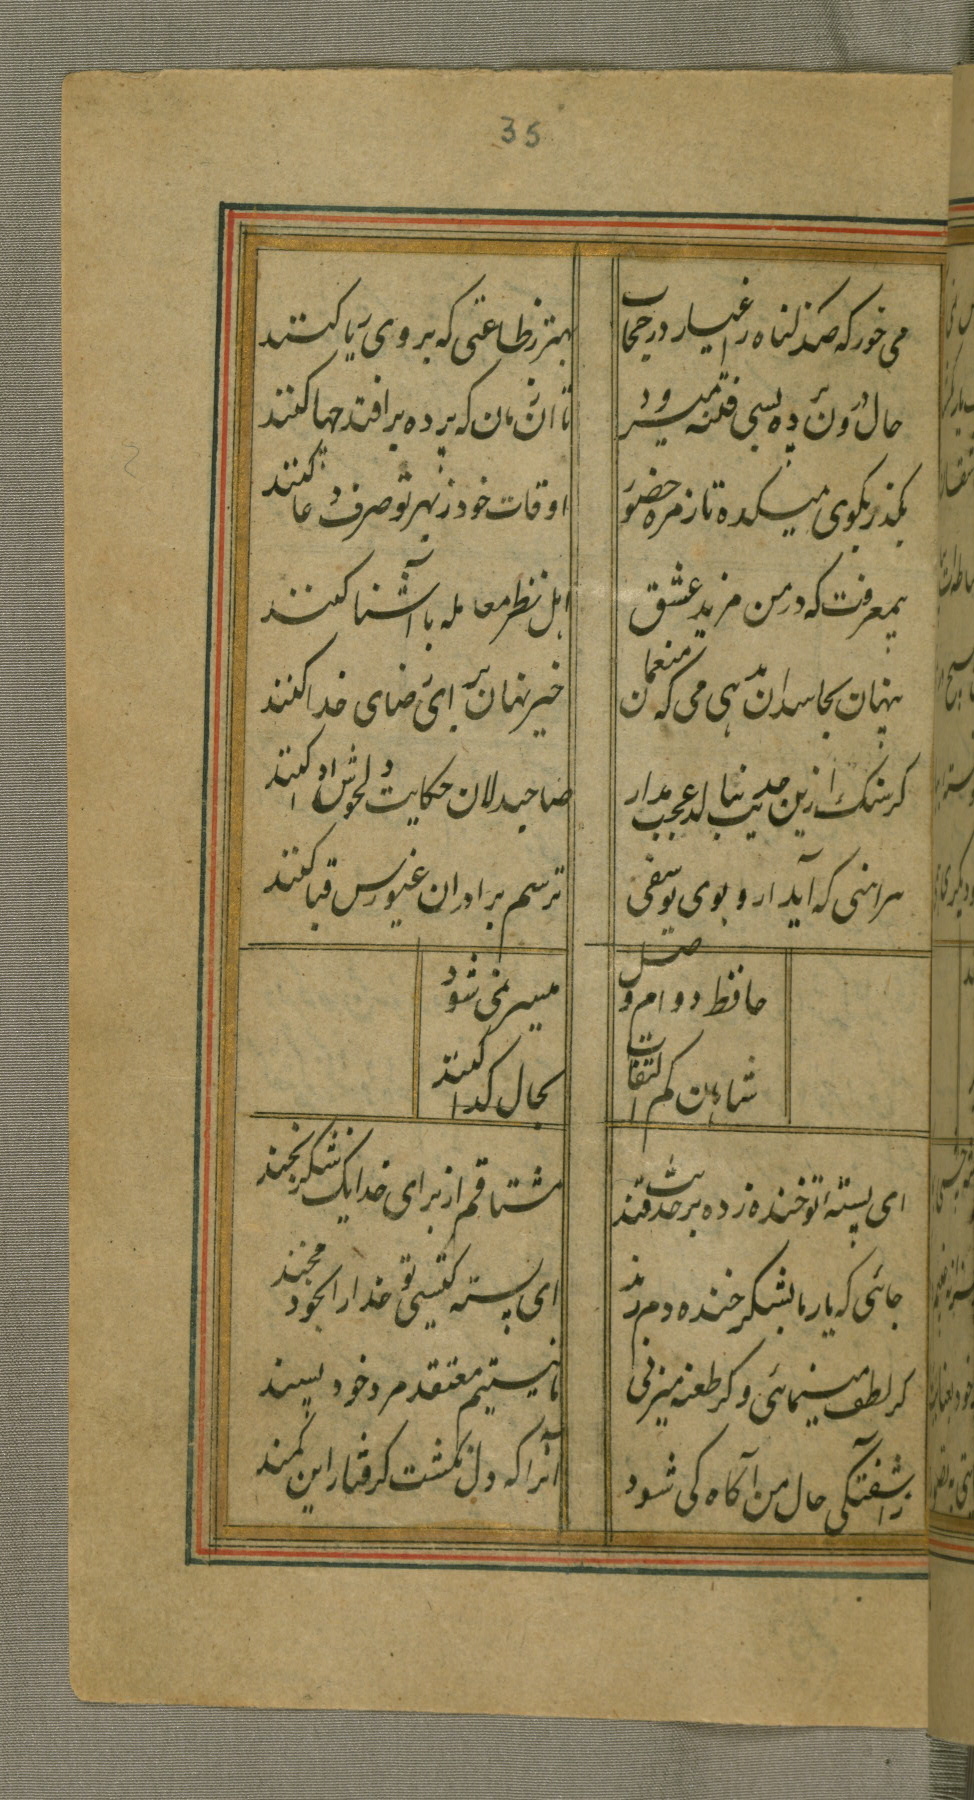 35
می خور که صد گناه ز اغیار در حجاب
بهتر ز طاعتی که بروی ریا کنند
حال درون پرده بسی فتنه میرود
تا آن زمان که پرده بر افتد چها کنند
بگذر بکوی میکده تا زمره حضور
اوقات خود ز بهر تو صرف دعا کنند
بیمعرفت که در من مزید عشق
اهل نظر معامله با آشنا کنند
پنهان ز حاسدان بدهی می که منعمان
خیر نهان برای رضای خدا کنند
گر سنگ ازین حدیث بنالد عجب مدار
صاحبدلان حکایت دل خوش ادا کنند
که آید ازو بوی یوسفی
ترسم برادران غیورش قبا کنند
حافظ دوام وصل
میسر نمی شود
شاهان کم التفات
بحال گدا کنند
ای پسته تو خنده زده بر حدیث قند
مشتاقم از برای خدا یک شکر بخند
جائی که یار ما بشکر خنده دم زند
ای پسته کیستی تو خدا را بخود مخند
گر لطف مینمائی و گر طعنه میزنی
ما نیستیم معتقد مرد خود پسند
ز آشفتگی حال من آگاه کی شود
آنرا که دل نگشت گرفتار این کمند